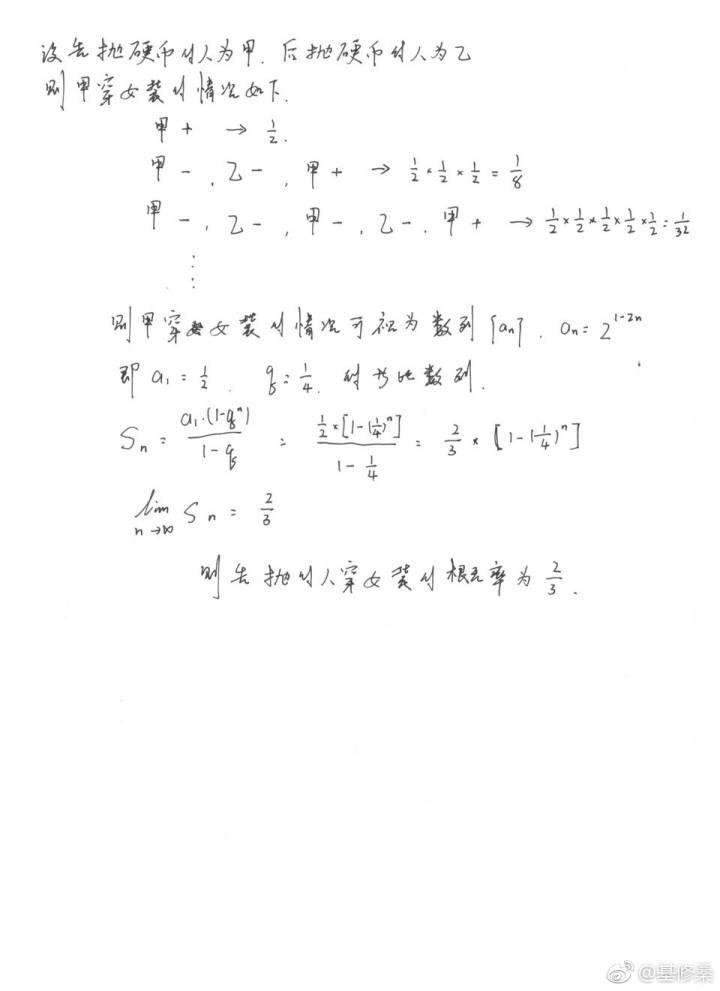 设先抛硬币的人为甲. 后抛硬币的人为乙
则甲穿女装的情况如下.
甲 + → 1/2.
甲 - , 乙 - , 甲 + → 1/2 × 1/2 × 1/2 = 1/8
甲 - , 乙 - , 甲 - , 乙 - , 甲 + → 1/2 × 1/2 × 1/2 × 1/2 × 1/2 = 1/32
⋮
则甲穿女装的情况可视为数列{an} . an = 2^(1-2n)
即 a1 = 1/2 . q = 1/4 . 的等比数列.
Sn = a1·(1-q^n)/(1-q) = 1/2 × [1-(1/4)^n]/(1-1/4) = 2/3 × [1-(1/4)^n]
lim n→∞ Sn = 2/3
则先抛的人穿女装的概率为 2/3 .
@基修桑